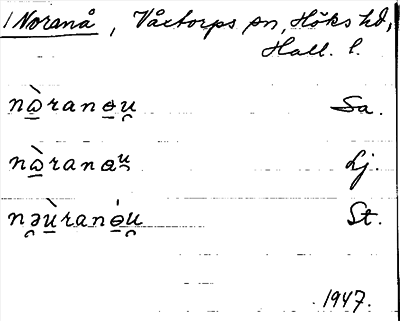 /Noranå, Våxtorps sn, Höks hd,
Hall. l.
nὼ̲ranɵ̲u̯ Sa.
nὼ̲ranɵᵘ̯ Lj.
nə̯ù̲ranɵ̲́u̯ St.
1947.